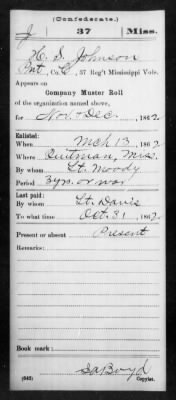 (Confederate.)
J 37 Miss.
H. S. Johnson
Pvt, Co. C, 37 Reg't Mississippi Vols.
Appears on
Company Muster Roll
of the organization named above,
for Nov. & Dec., 1862
Enlisted:
When Mch 13, 1862
Where Quitman, Miss.
By whom Lt. Moody
Period 3 yrs. or war
Last paid:
By whom Lt. Davis
To what time Oct. 31, 1862
Present or absent Present
Remarks:
Book mark:
(642) Sa Boyd
Copyist.